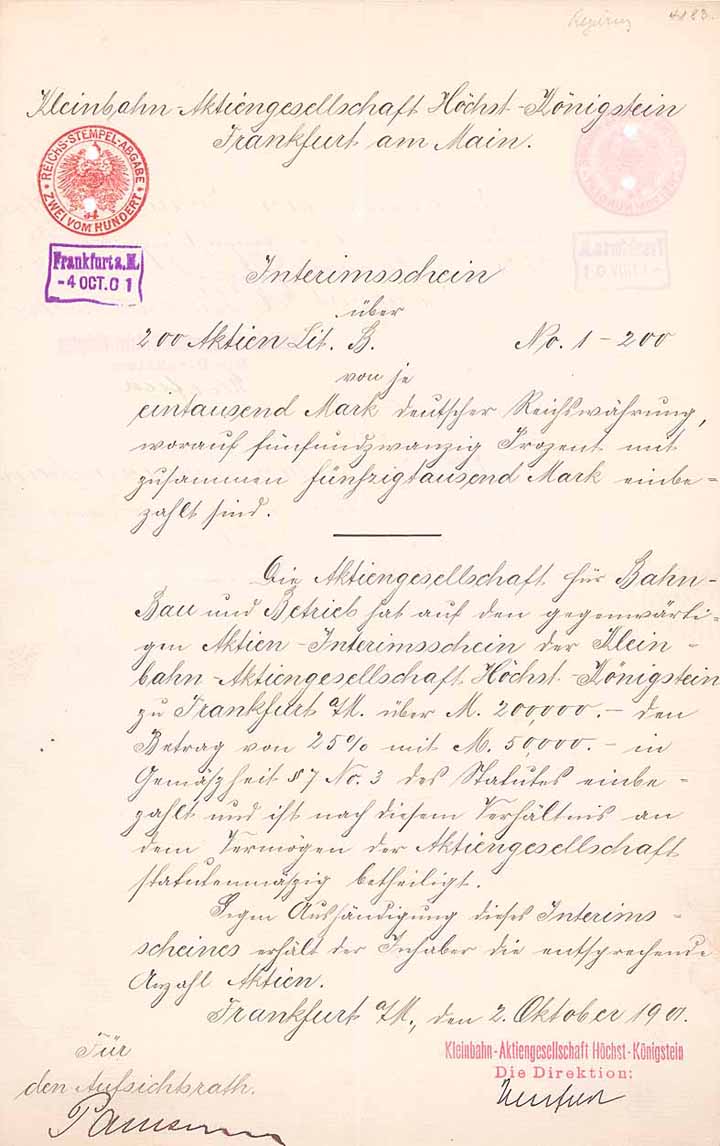 4183.
Kleinbahn-Aktiengesellschaft Höchst-Königstein
Frankfurt am Main.
REICHS-STEMPEL-ABGABE
ZWEI VOM HUNDERT
34
Frankfurt a.M.
-4 OCT.01
Interimsschein
über
200 Aktien Lit. B. No. 1-200
von je
eintausend Mark deutscher Reichswährung,
worauf fünfundzwanzig Prozent mit
zusammen fünfzigtausend Mark einbe-
zahlt sind.
Die Aktiengesellschaft für Bahn-
Bau und Betrieb hat auf den gegenwärti-
gen Aktien-Interimsschein der Klein-
bahn-Aktiengesellschaft Höchst-Königstein
zu Frankfurt a/M. über M. 200000.- den
Betrag von 25% mit M. 50,000.- in
Gemäszheit §7 No. 3 des Statutes einbe-
zahlt und ist nach diesem Verhältnis an
dem Vermögen der Aktiengesellschaft
statutenmäszig betheiligt.
Gegen Aushändigung dieses Interims-
scheines erhält der Inhaber die entsprechende
Anzahl Aktien.
Frankfurt a/M., den 2. Oktober 1901.
Für
den Aufsichtsrath.
Kleinbahn-Aktiengesellschaft Höchst-Königstein
Die Direktion: